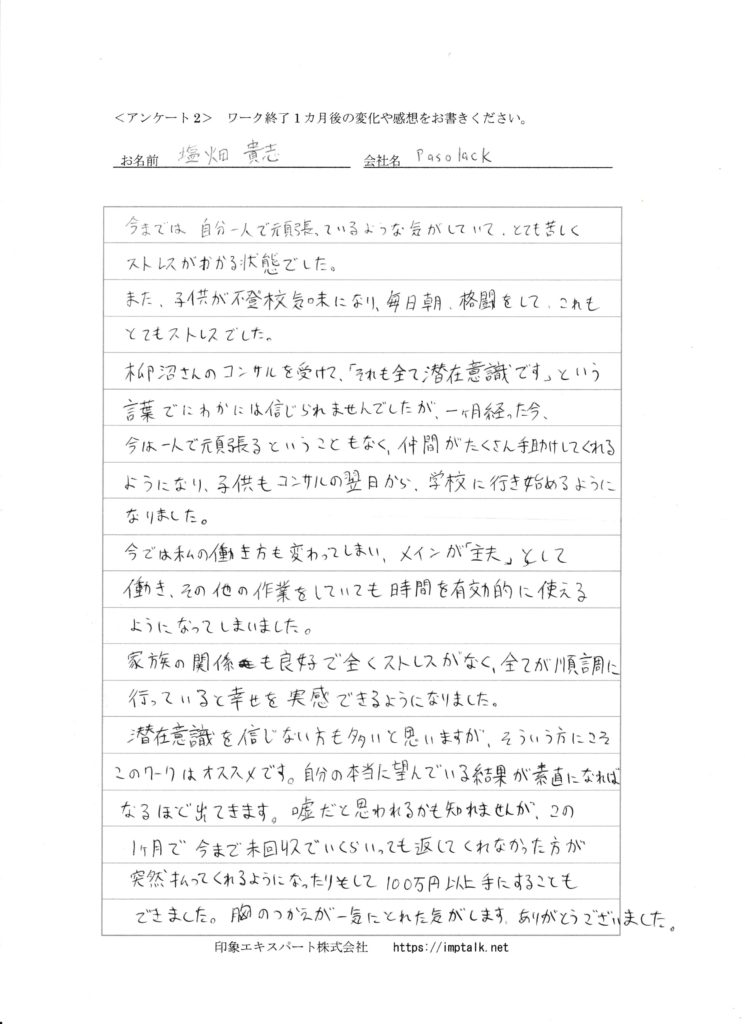 ＜アンケート2＞ ワーク終了1カ月後の変化や感想をお書きください。
お名前 塩畑 貴志 会社名 Pasolack
今までは 自分一人で頑張っているような気がしていて、とても苦しく
ストレスがかかる状態でした。
また、子供が不登校気味になり、毎日朝、格闘をして、これも
とてもストレスでした。
柳沼さんのコンサルを受けて、「それも全て潜在意識です」という
言葉でにわかには信じられませんでしたが、一ヶ月経った今、
今は一人で頑張るということもなく、仲間がたくさん手助けしてくれる
ようになり、子供もコンサルの翌日から、学校に行き始めるように
なりました。
今では私の働き方も変わってしまい、メインが「主夫」として
働き、その他の作業をしていても時間を有効的に使える
ようになってしまいました。
家族の関係も良好で全くストレスがなく、全てが順調に
行っていると幸せを実感できるようになりました。
潜在意識を信じない方も多いと思いますが、そういう方にこそ
このワークはオススメです。自分の本当に望んでいる結果が素直になれば
なるほど出てきます。嘘だと思われるかも知れませんが、この
1ヶ月で今まで未回収でいくらいっても返してくれなかった方が
突然払ってくれるようになったりもして100万円以上手にすることも
できました。胸のつかえが一気にとれた気がします。ありがとうございました。
印象エキスパート株式会社 https://imptalk.net